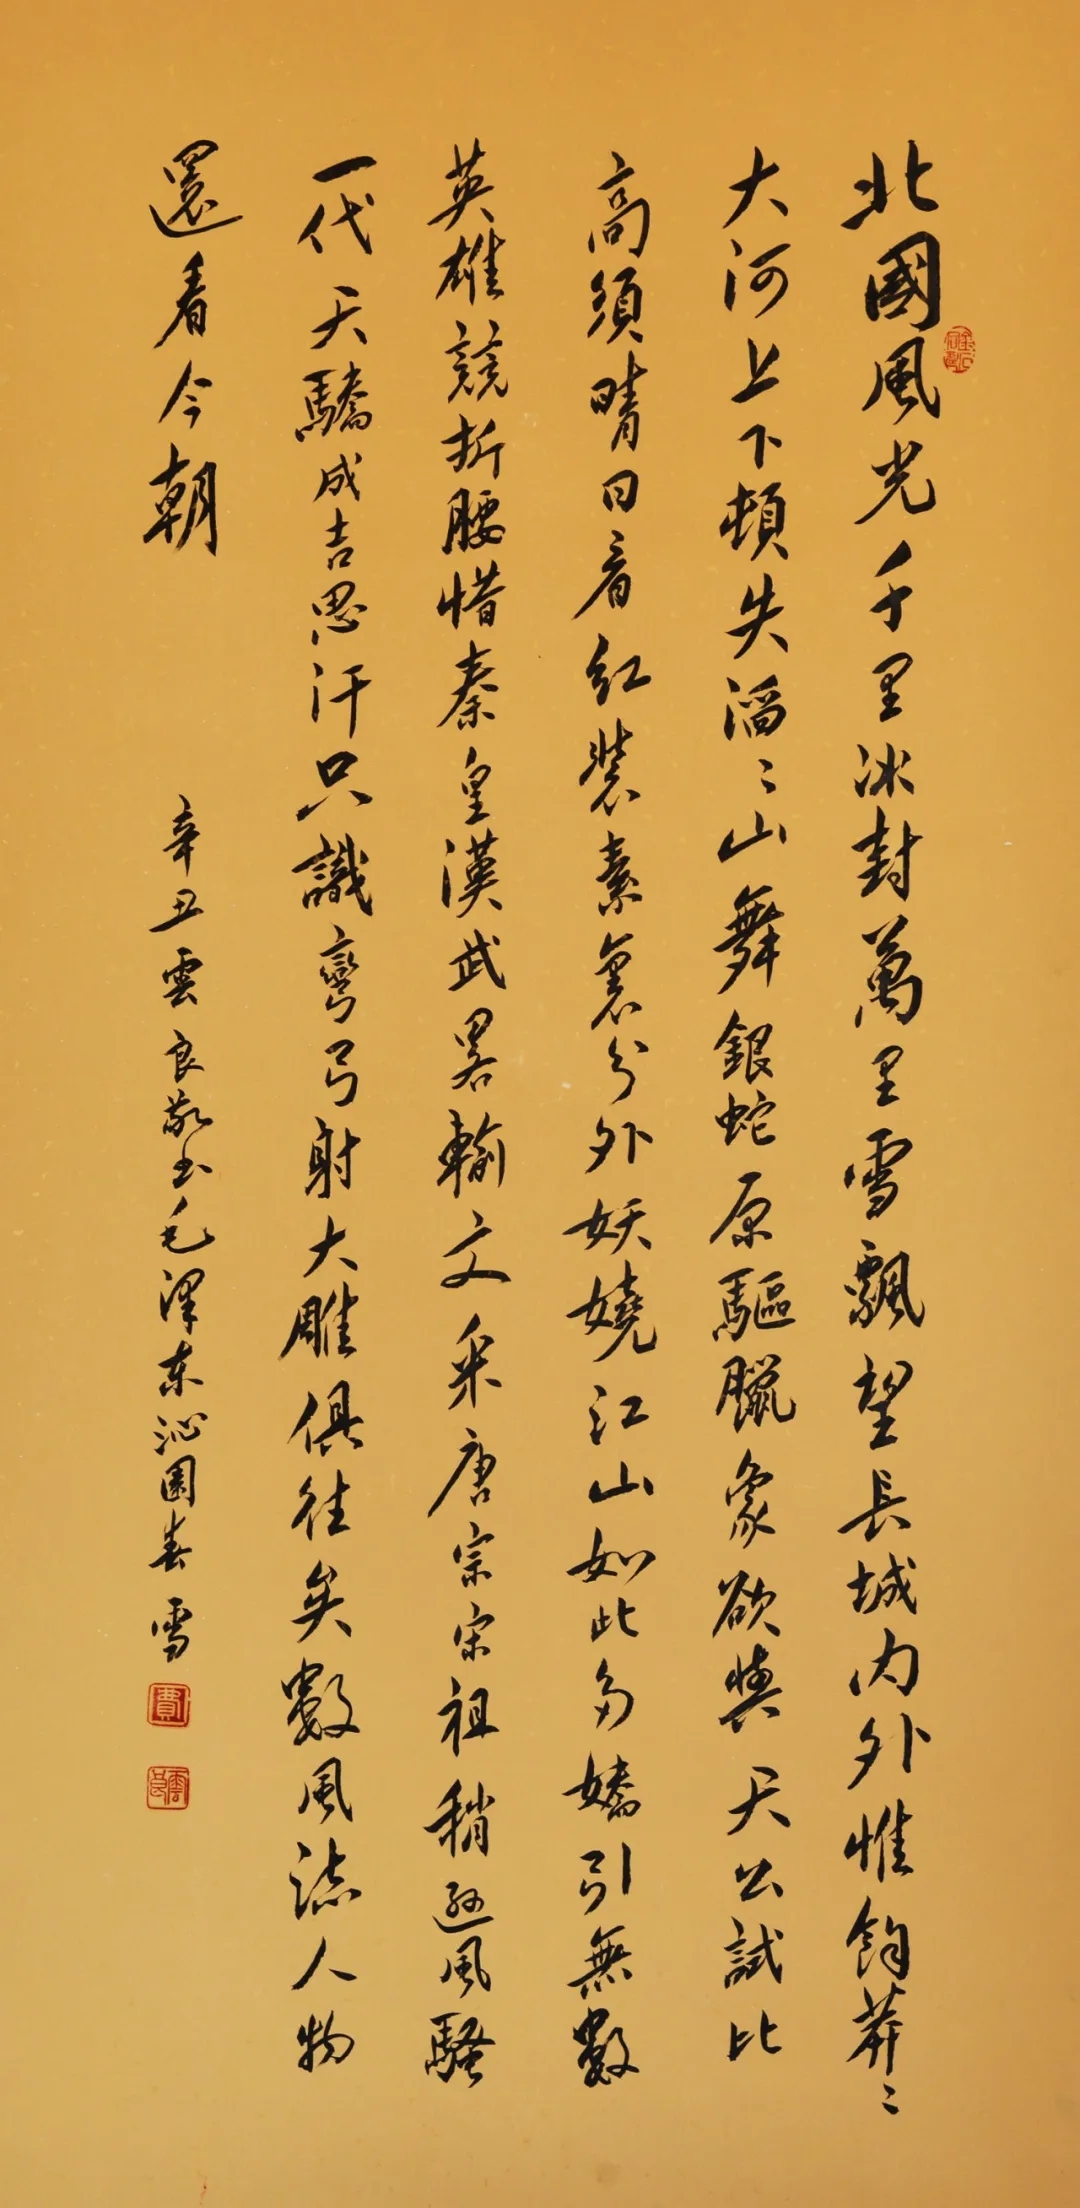 北國風光千里冰封萬里雪飄望長城內外惟餘莽〻
大河上下頓失滔〻山舞銀蛇原驅臘象欲與天公試比
高須晴日看紅裝素裹分外妖嬈江山如此多嬌引無數
英雄競折腰惜秦皇漢武畧輸文采唐宗宋祖稍遜風騷
一代天驕成吉思汗只識彎弓射大雕俱往矣數風流人物
還看今朝
辛丑雲良敬书毛澤东沁園春雪
費
雲良